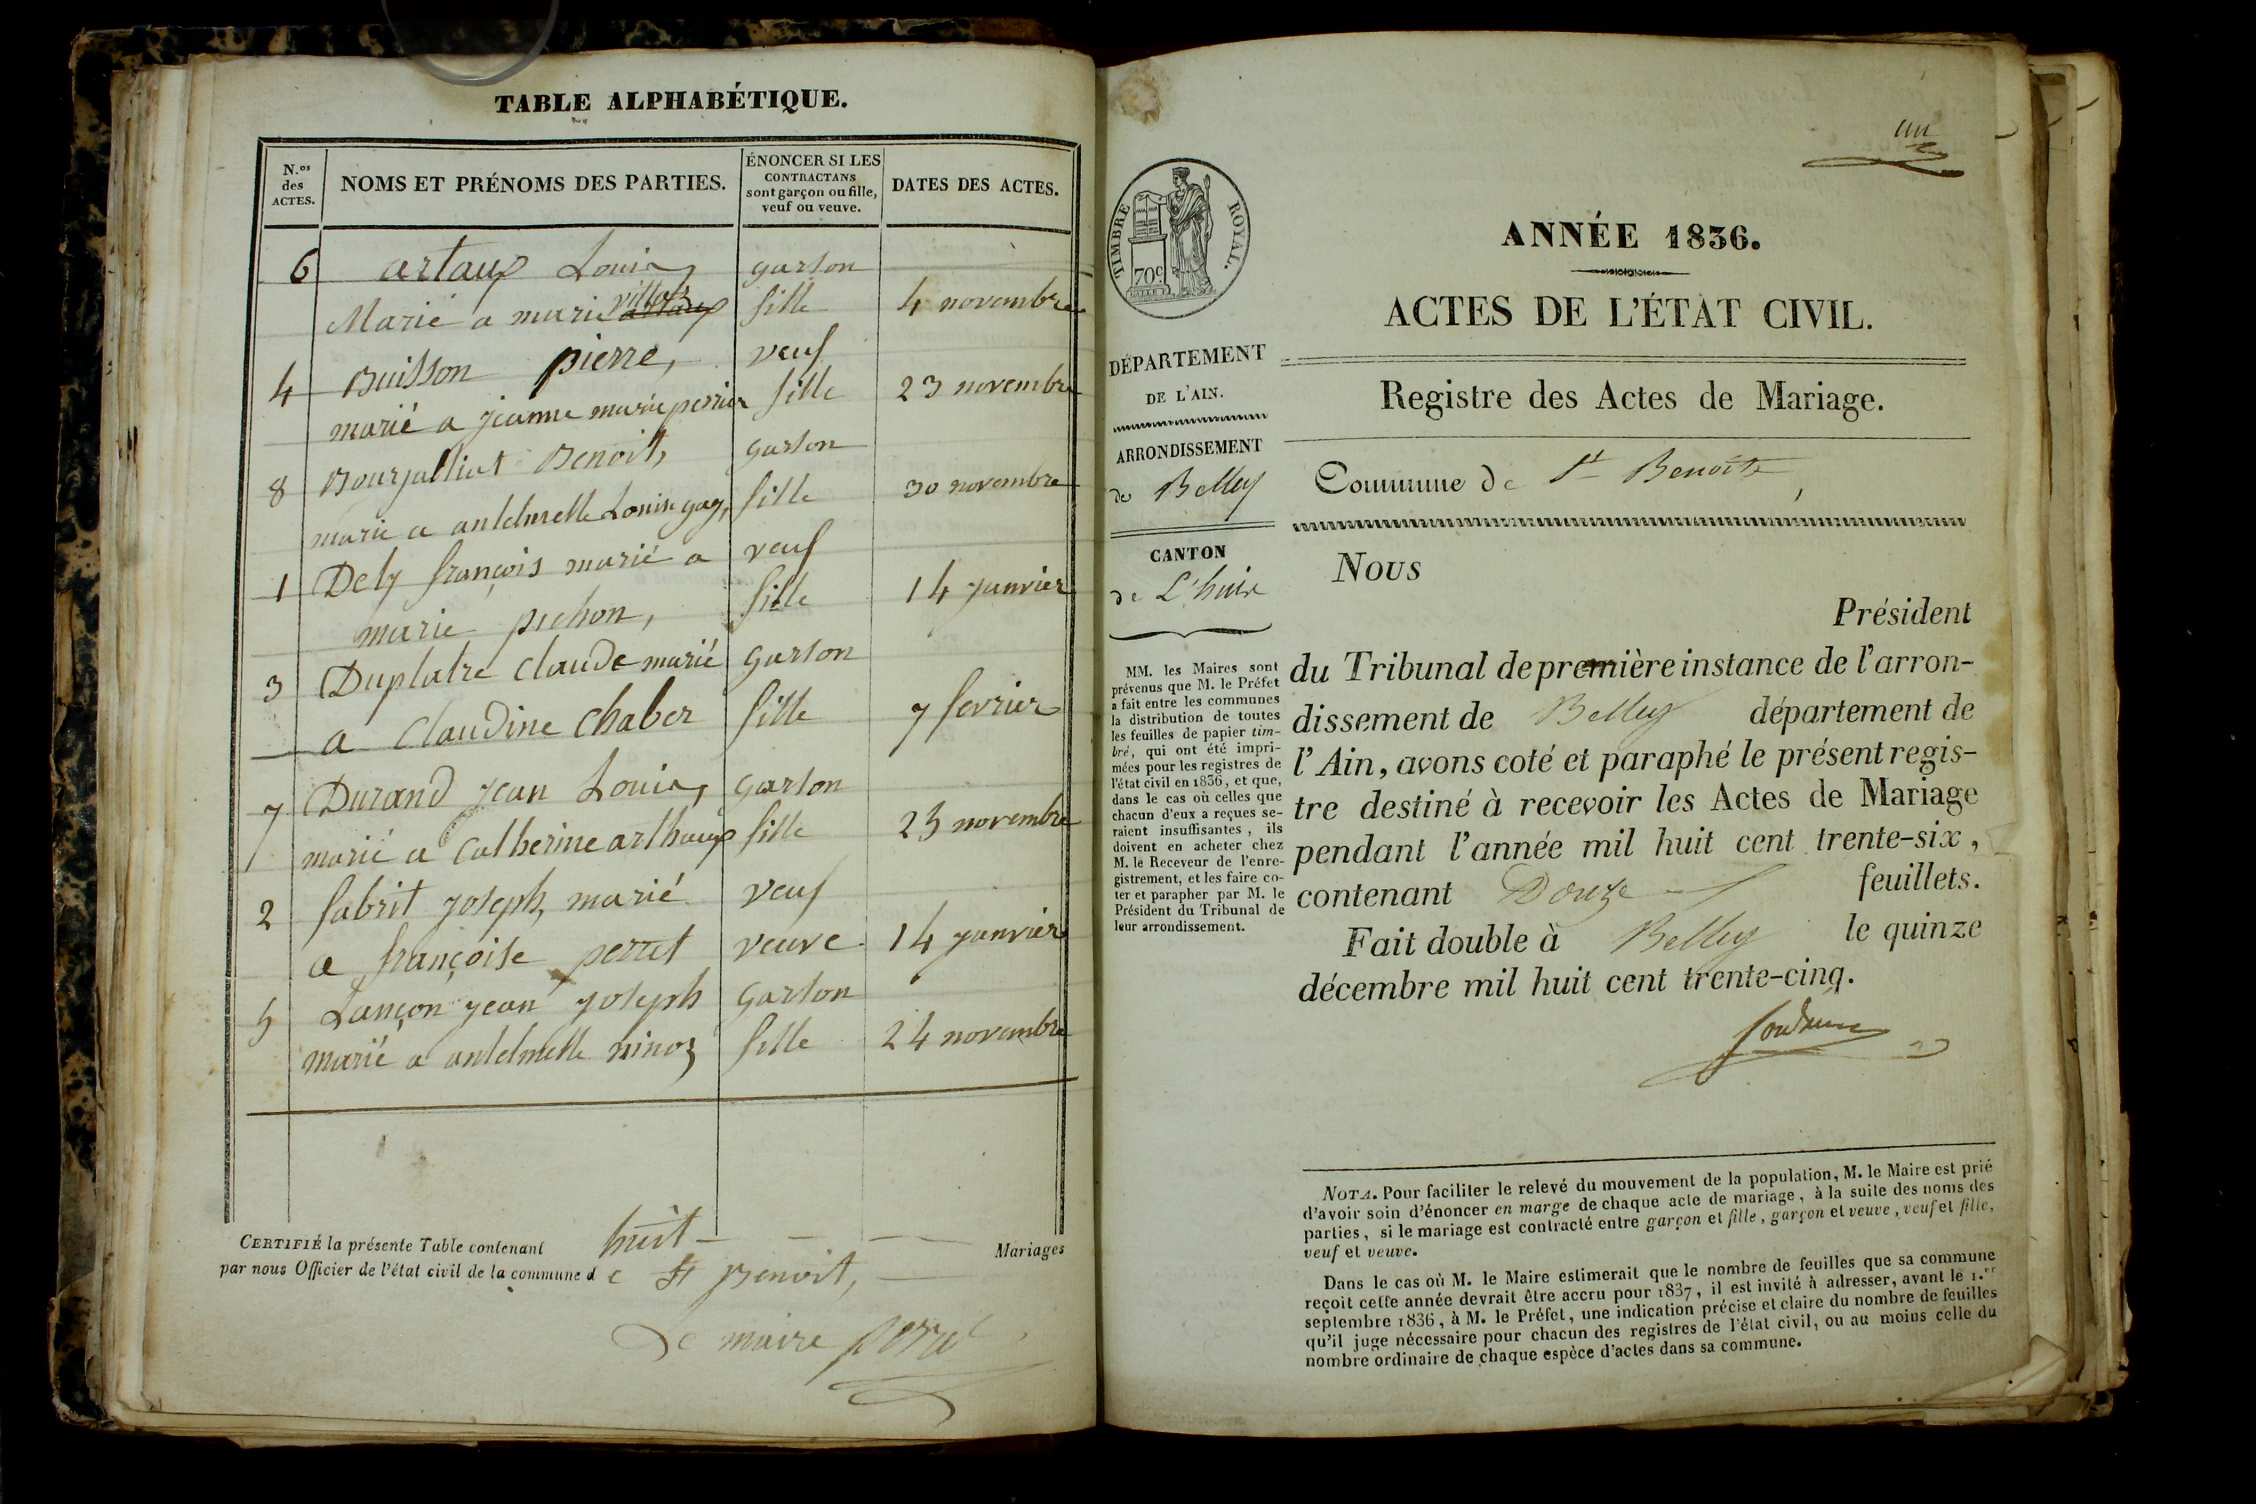 TABLE ALPHABÉTIQUE.
N.os des ACTES.
NOMS ET PRÉNOMS DES PARTIES.
ÉNONCER SI LES CONTRACTANS sont garçon ou fille, veuf ou veuve.
DATES DES ACTES.
6 artaux Louis, garson
Marié a marie villot fille 4 novembre
4 Buisson pierre, veuf
marié a jeanne marie perrier fille 23 novembre
8 Bourjalliat Benoit, garson
marié a antelmelle Louise gay, fille 30 novembre
1 Dely françois marié a veuf
marie pichon, fille 14 janvier
3 Duplatre claude marié garson
a claudine chaber fille 7 fevrier
7 Durand jean Louis, garson
marié a catherine arthaux fille 23 novembre
2 fabrit joseph, marié veuf
a françoise perret veuve 14 janvier
5 Lançon jean joseph garson
marié a antelmelle ninoz fille 24 novembre
CERTIFIÉ la présente Table contenant huit Mariages
par nous Officier de l'état civil de la commune de St Benoit,
Le maire perret
un
TIMBRE ROYAL.
70c.
ANNÉE 1836.
ACTES DE L'ÉTAT CIVIL.
Registre des Actes de Mariage.
Commune de St Benoîte,
DÉPARTEMENT
DE L'AIN.
ARRONDISSEMENT
de Belley
CANTON
de L'huis
MM. les Maires sont
prévenus que M. le Préfet
a fait entre les communes
la distribution de toutes
les feuilles de papier tim-
bré, qui ont été impri-
mées pour les registres de
l'état civil en 1836, et que,
dans le cas où celles que
chacun d'eux a reçues se-
raient insuffisantes, ils
doivent en acheter chez
M. le Receveur de l'enre-
gistrement, et les faire co-
ter et parapher par M. le
Président du Tribunal de
leur arrondissement.
Nous
Président
du Tribunal de première instance de l'arron-
dissement de Belley département de
l'Ain, avons coté et paraphé le présent regis-
tre destiné à recevoir les Actes de Mariage
pendant l'année mil huit cent trente-six,
contenant Douze feuillets.
Fait double à Belley le quinze
décembre mil huit cent trente-cinq.
NOTA. Pour faciliter le relevé du mouvement de la population, M. le Maire est prié
d'avoir soin d'énoncer en marge de chaque acte de mariage, à la suite des noms des
parties, si le mariage est contracté entre garçon et fille, garçon et veuve, veuf et fille,
veuf et veuve.
Dans le cas où M. le Maire estimerait que le nombre de feuilles que sa commune
reçoit cette année devrait être accru pour 1837, il est invité à adresser, avant le 1.er
septembre 1836, à M. le Préfet, une indication précise et claire du nombre de feuilles
qu'il juge nécessaire pour chacun des registres de l'état civil, ou au moins celle du
nombre ordinaire de chaque espèce d'actes dans sa commune.